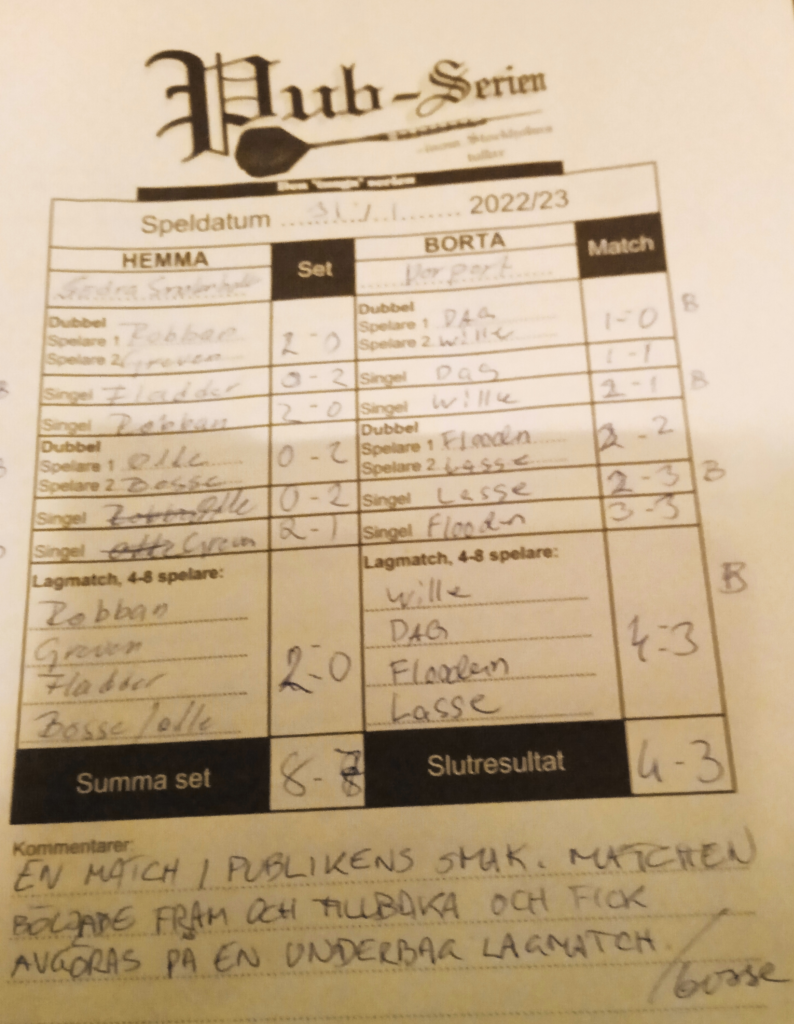 Pub-Serien
Den "tunga" serien
Speldatum 31/1 2022/23
HEMMA Set BORTA Match
Södra
Dubbel
Spelare 1 Robban
Spelare 2 Greven
2-0
Dubbel
Spelare 1 DAG
Spelare 2 Wille
1-0 B
Singel Fladder 0-2 Singel Dag 1-1
Singel Robban 2-0 Singel Wille 2-1 B
Dubbel
Spelare 1 Olle
Spelare 2 Bosse
0-2
Dubbel
Spelare 1 Flooden
Spelare 2 Lasse
2-2
Singel Olle 0-2 Singel Lasse 2-3 B
Singel Greven 2-1 Singel Flooden 3-3
Lagmatch, 4-8 spelare:
Robban
Greven
Fladder
Bosse/olle
2-0
Lagmatch, 4-8 spelare:
Wille
DAG
Flooden
Lasse
4-3 B
Summa set 8-7 Slutresultat 4-3
Kommentarer:
EN MATCH I PUBLIKENS SMAK. MATCHEN
BÖLJADE FRAM OCH TILLBAKA OCH FICK
AVGÖRAS PÅ EN UNDERBAG LAGMATCH
/bosse